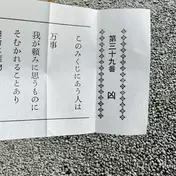 第三十九番
凶
このみくじにあう人は
万事
我が頼みに思うものに
そむかれることあり